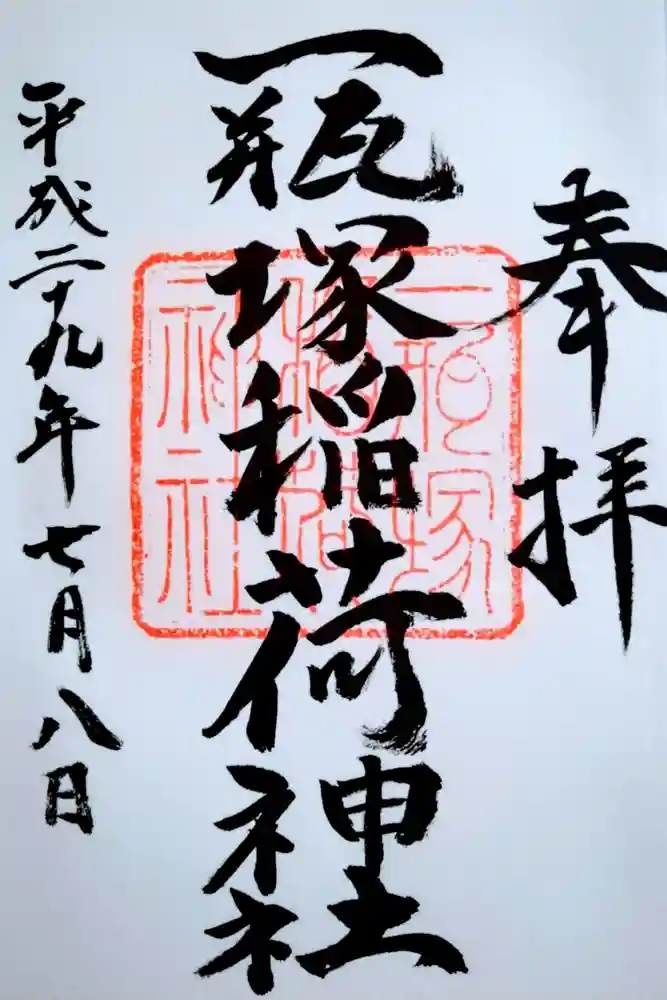 奉拝
一瓶塚稲荷神社
平成二十九年七月八日
一瓶塚
稲荷
神社